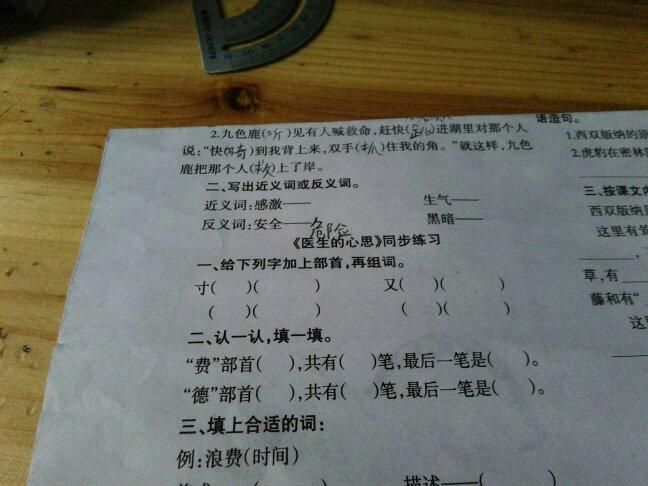 2.九色鹿(听)见有人喊救命,赶快(跳)进湖里对那个人
说:“快(骑)到我背上来,双手(抓)住我的角。”就这样,九色
鹿把那个人(救)上了岸。
二、写出近义词或反义词。
近义词:感激—— 生气——
反义词:安全——危险 黑暗——
《医生的心思》同步练习
一、给下列字加上部首,再组词。
寸( )( ) 又( )( )
( )( ) ( )( )
二、认一认,填一填。
“费”部首( ),共有( )笔,最后一笔是( )。
“德”部首( ),共有( )笔,最后一笔是( )。
三、填上合适的词:
例:浪费(时间)
描述——( )
语造句。
1.西双版纳的
2.虎豹在密林
三、按课文内
西双版纳是
这里有
草,有
藤和有“
这